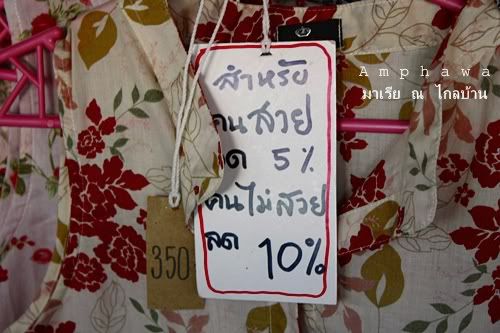 Amphawa
มาเรีย ณ ไกลบ้าน
สำหรับ
คนสวย
ลด 5%
คนไม่สวย
ลด 10%
350